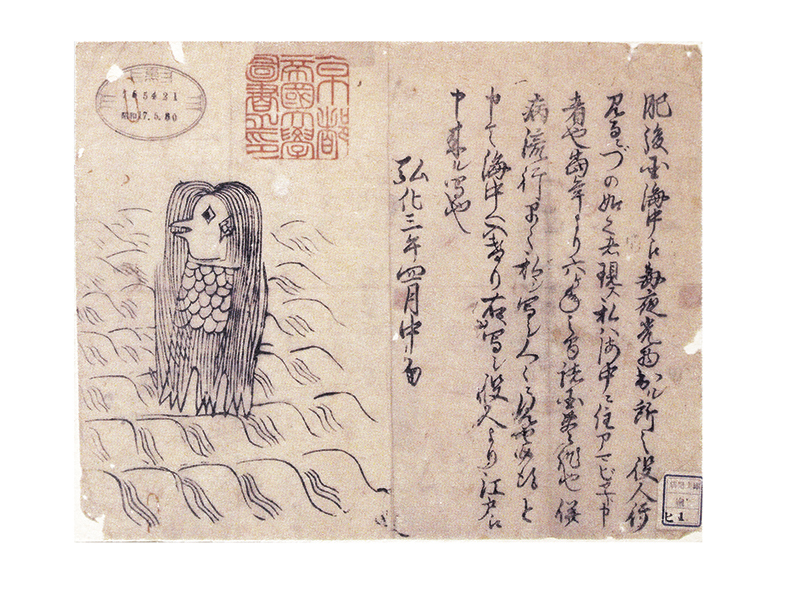 肥後国海中江毎夜光物出ル所之役人行
見るニづの如く者現ス私ハ海中ニ住アマビヱト申
者也當年より六ヶ年之間諸国豊作也併
病流行早々私ヲ写シ人々ニ見セ候得と
申て海中へ入けり右写シ役人より江戸江
申来ル写也
弘化三年四月中旬
京都
帝國大學
圖書之印
165421
昭和17.5.30